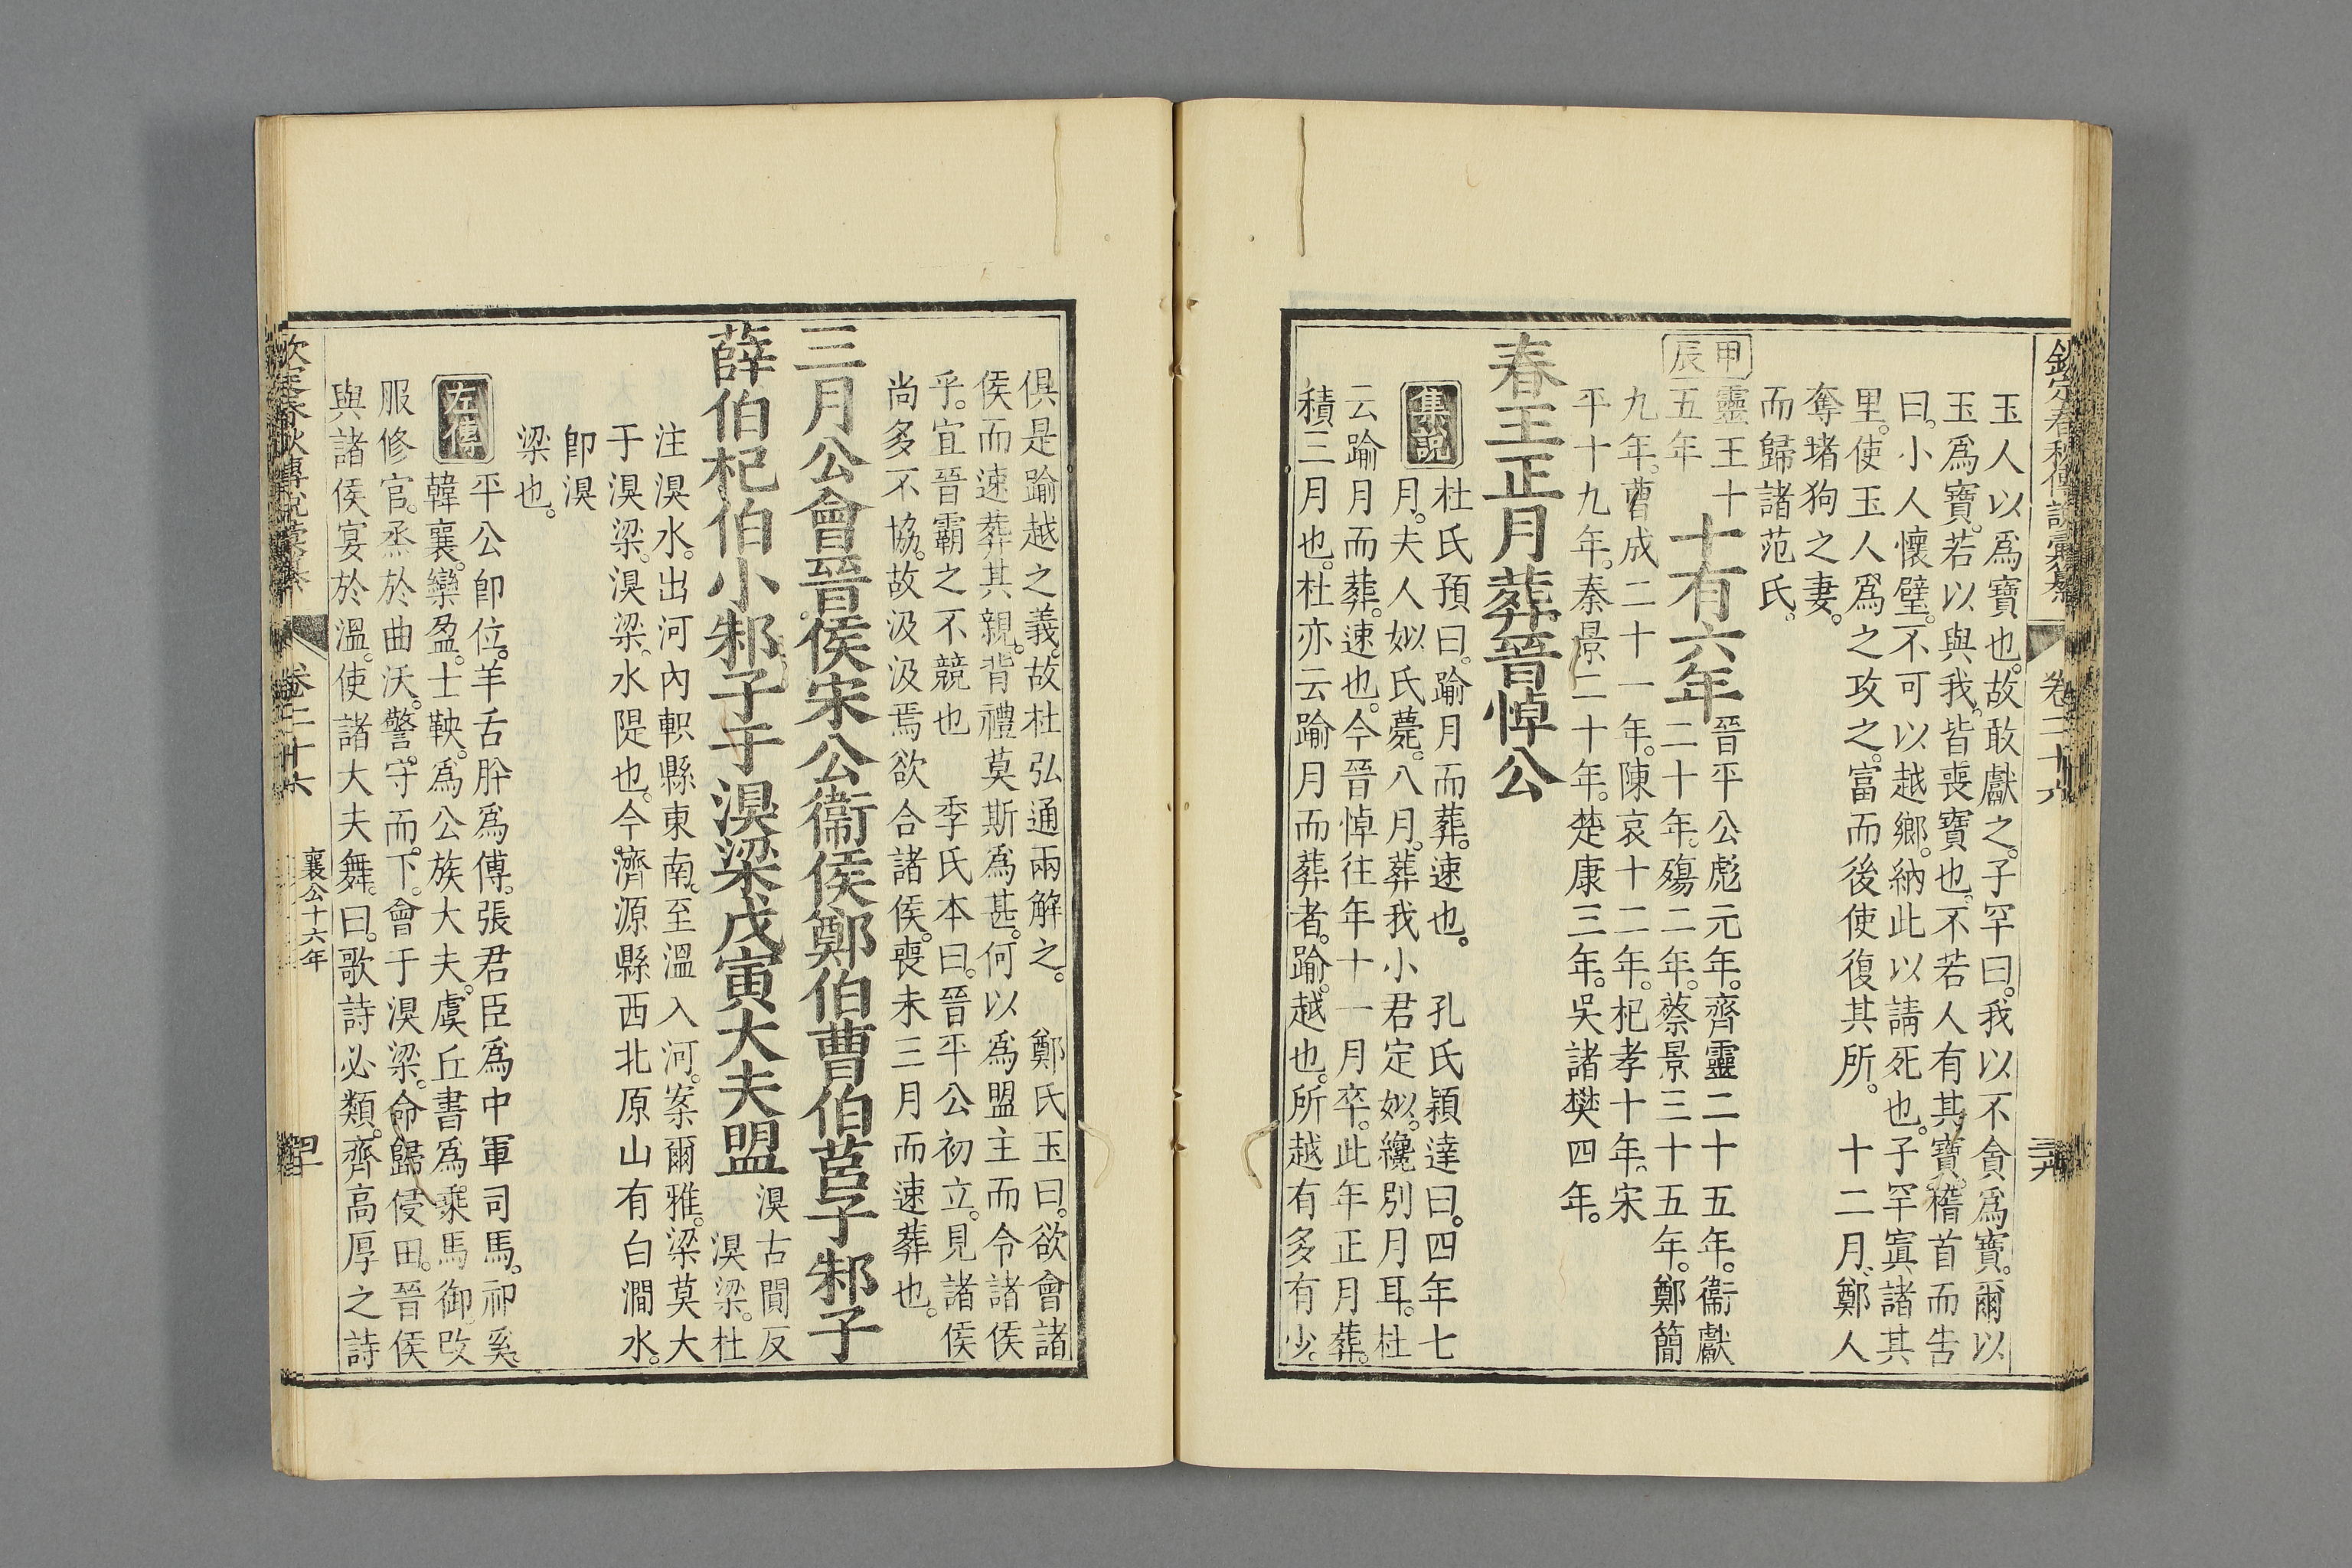 欽定春秋傳說彙纂 卷二十六
玉人以爲寶也。故敢獻之。子罕曰。我以不貪爲寶。爾以
玉爲寶。若以與我。皆喪寶也。不若人有其寶。稽首而告
曰。小人懷璧。不可以越鄉。納此以請死也。子罕寘諸其
里。使玉人爲之攻之。富而後使復其所。 十二月。鄭人
奪堵狗之妻。
而歸諸范氏。
甲辰
靈王十五年
十有六年
晉平公彪元年。齊靈二十五年。衞獻
二十年。殤二年。蔡景三十五年。鄭簡
九年。曹成二十一年。陳哀十二年。杞孝十年。宋
平十九年。秦景二十年。楚康三年。吳諸樊四年。
春王正月葬晉悼公
集說
杜氏預曰。踰月而葬。速也。 孔氏穎達曰。四年七
月。夫人姒氏薨。八月。葬我小君定姒。纔別月耳。杜
云踰月而葬。速也。今晉悼往年十一月卒。此年正月葬。
積三月也。杜亦云踰月而葬者。踰。越也。所越有多有少。
俱是踰越之義。故杜弘通兩解之。 鄭氏玉曰。欲會諸
侯而速葬其親。背禮莫斯爲甚。何以爲盟主而令諸侯
乎。宜晉霸之不競也 季氏本曰。晉平公初立。見諸侯
尚多不協。故汲汲焉欲合諸侯。喪未三月而速葬也。
三月公會晉侯宋公衞侯鄭伯曹伯莒子邾子
薛伯杞伯小邾子于湨梁戊寅大夫盟
湨古闃反
湨梁。杜
注湨水。出河內軹縣東南。至溫入河。案爾雅。梁莫大
于湨梁。湨梁。水隄也。今濟源縣西北原山有白澗水。
卽湨
梁也。
左傳
平公卽位。羊舌肸爲傅。張君臣爲中軍司馬。祁奚。
韓襄。欒盈。士鞅。爲公族大夫。虞丘書爲乘馬御。改
服修官。烝於曲沃。警守而下。會于湨梁。命歸侵田。晉侯
與諸侯宴於溫。使諸大夫舞。曰。歌詩必類。齊高厚之詩
卷二十六 襄公十六年